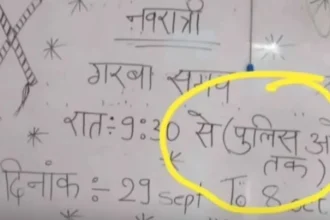 नवरात्री
गरबा समय
रात:- 9:30 से (पुलिस
तक)
दिनांक :- 29 sept To 8 oct